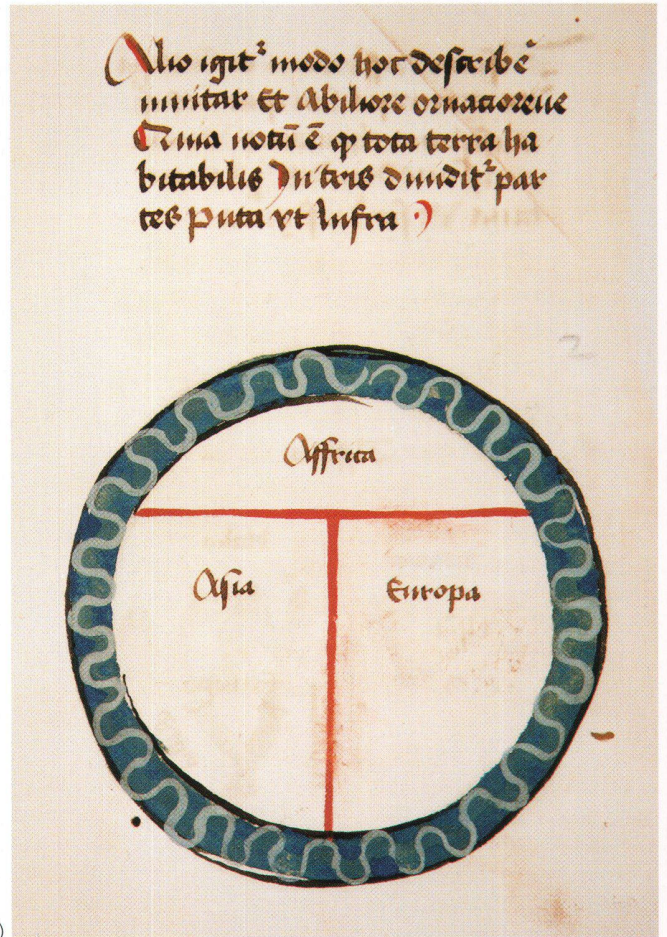 Alio igitᷣ modo hoc describē
mutar Et Abiliore ornaciorēue
Quia notū ē ꝙ tota terra ha
bitabilis In tris diuiditᷣ par
tes Puta vt Infra
Affrica
Asia
Europa